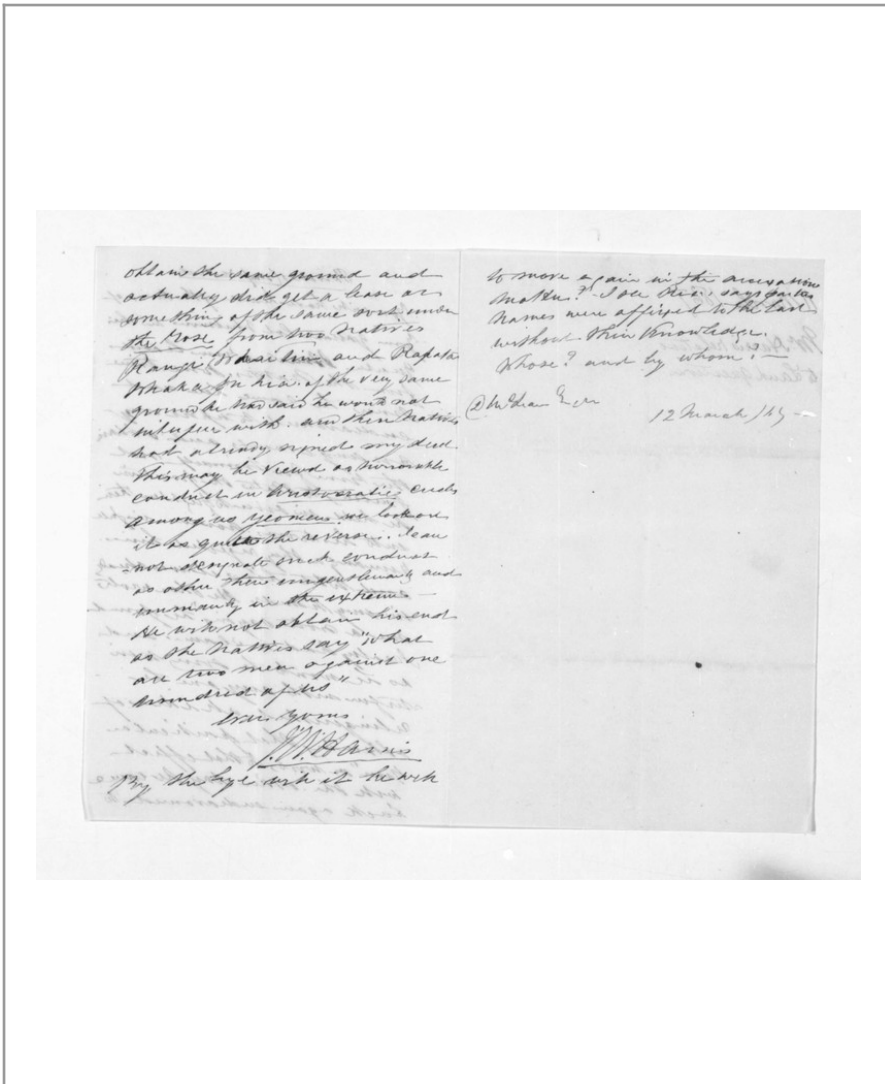 obtain the same ground and
actually did get a lease or
something of the same sort under
the Rose from two natives
Rangi and Rapata
Whaka for him of the very same
ground he had said he would not
interfere with and these Natives
had already signed my deed
This may be viewed as honorable
conduct in Aristocratic circles
among us yeomen we look on
it as quite the reverse. I can
not designate such conduct
as other than ungentlemanly and
unmanly in the extreme –
He will not obtain his end
as the Natives say "What
are two men against one
hundred of us"
ever yours
J W Harris
By the bye will it be well
to move again in the
matter? I see says parties
names were affixed to the last
without their knowledge.
Whose? and by whom? –
D McLean Esqre
12 March /